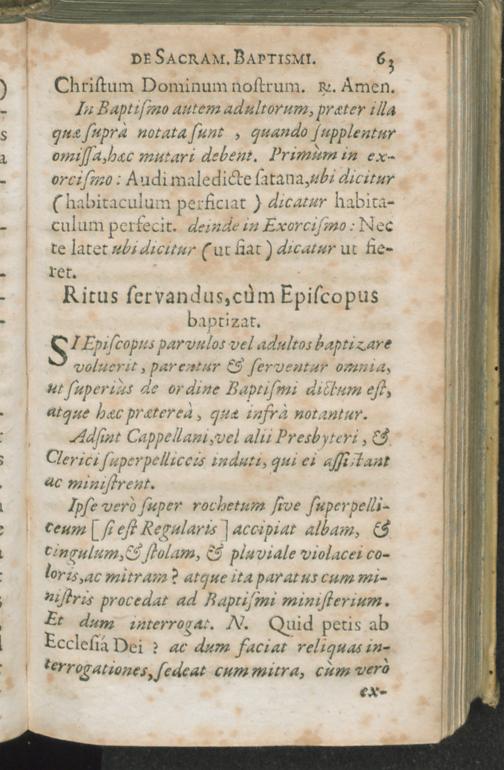 DE SACRAM. BAPTISMI. 63
Chriſtum Dominum noſtrum. ℟. Amen.
In Baptiſmo autem adultorum, præter illa
quæ ſuprà notata ſunt , quando ſupplentur
omiſſa,hæc mutari debent. Primùm in ex-
orciſmo : Audi maledicte ſatana,ubi dicitur
( habitaculum perficiat ) dicatur habita-
culum perfecit. deinde in Exorciſmo : Nec
te latet ubi dicitur ( ut fiat ) dicatur ut fie-
ret.
Ritus ſervandus,cùm Epiſcopus
baptizat.
SI Epiſcopus parvulos vel adultos baptizare
voluerit , parentur & ſerventur omnia,
ut ſuperiùs de ordine Baptiſmi dictum eſt,
atque hæc prætereà , quæ infrà notantur.
Adſint Cappellani,vel alii Presbyteri , &
Clerici ſuperpelliceis induti, qui ei aſſiſtant
ac miniſtrent.
Ipſe verò ſuper rochetum ſive ſuperpelli-
ceum [ ſi eſt Regularis ] accipiat albam, &
cingulum,& ſtolam, & pluviale violacei co-
loris,ac mitram ? atque ita paratus cum mi-
niſtris procedat ad Baptiſmi miniſterium.
Et dum interrogat. N. Quid petis ab
Eccleſiâ Dei ? ac dum faciat reliquas in-
terrogationes, ſedeat cum mitra, cùm verò
ex-